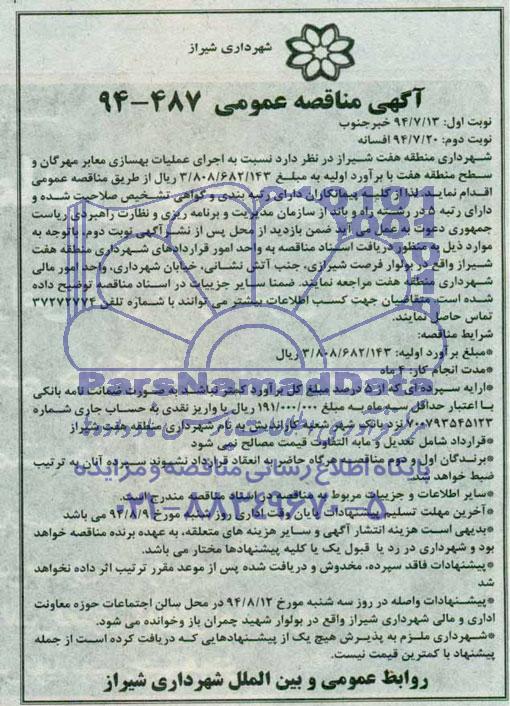 شهرداری شیراز
آگهی مناقصه عمومی ۴۸۷-۹۴
نوبت اول: ۹۴/۷/۱۳ خبرجنوب
نوبت دوم: ۹۴/۷/۲۰ افسانه
شهرداری منطقه هفت شیراز در نظر دارد نسبت به اجرای عملیات بهسازی معابر مهرگان و
سطح منطقه هفت با برآورد اولیه به مبلغ ۳/۸۰۸/۶۸۲/۱۴۳ ریال از طریق مناقصه عمومی
اقدام نماید. لذا از کلیه پیمانکاران دارای رتبه بندی و گواهی تشخیص صلاحیت شده و
دارای رتبه ۵ در رشته راه و باند از سازمان مدیریت و برنامه ریزی و نظارت راهبردی ریاست
جمهوری دعوت به عمل می آید ضمن بازدید از محل پس از نشر آگهی نوبت دوم، باتوجه به
موارد ذیل به منظور دریافت اسناد مناقصه به واحد امور قراردادهای شهرداری منطقه هفت
شیراز واقع در بولوار فرصت شیرازی، جنب آتش نشانی، خیابان شهرداری، واحد امور مالی
شهرداری منطقه هفت مراجعه نمایند. ضمنا سایر جزییات در اسناد مناقصه توضیح داده
شده است. متقاضیان جهت کسب اطلاعات بیشتر می توانند با شماره تلفن ۳۷۲۷۲۷۷۴
تماس حاصل نمایند.
شرایط مناقصه:
*مبلغ برآورد اولیه: ۳/۸۰۸/۶۸۲/۱۴۳ ریال
*مدت انجام کار: ۴ ماه
*ارایه سپرده ای که از ۵ درصد مبلغ کل برآورد کمتر نباشد به صورت ضمانت نامه بانکی
با اعتبار حداقل سه ماه به مبلغ ۱۹۱/۰۰۰/۰۰۰ ریال یا واریز نقدی به حساب جاری شماره
۷۰۰۷۹۳۵۴۵۱۲۳ نزد بانک شهر شعبه کاراندیش به نام شهرداری منطقه هفت شیراز
*قرارداد شامل تعدیل و مابه التفاوت قیمت مصالح نمی شود
*برندگان اول و دوم مناقصه هرگاه حاضر به انعقاد قرارداد نشوند سپرده آنان به ترتیب
ضبط خواهد شد.
*سایر اطلاعات و جزییات مربوط به مناقصه در اسناد مناقصه مندرج است.
*آخرین مهلت تسلیم پیشنهادات پایان وقت اداری روز شنبه مورخ ۹۴/۸/۹ می باشد
*بدیهی است هزینه انتشار آگهی و سایر هزینه های متعلقه، به عهده برنده مناقصه خواهد
بود و شهرداری در رد یا قبول یک یا کلیه پیشنهادها مختار می باشد.
*پیشنهادات فاقد سپرده، مخدوش و دریافت شده پس از موعد مقرر ترتیب اثر داده نخواهد
شد
*پیشنهادات واصله در روز سه شنبه مورخ ۹۴/۸/۱۲ در محل سالن اجتماعات حوزه معاونت
اداری و مالی شهرداری شیراز واقع در بولوار شهید چمران باز وخوانده می شود.
*شهرداری ملزم به پذیرش هیچ یک از پیشنهادهایی که دریافت کرده است از جمله
پیشنهاد با کمترین قیمت نیست.
روابط عمومی و بین الملل شهرداری شیراز
ParsNamadData
پایگاه اطلاع رسانی مناقصه و مزایده
۰۲۱-۸۸۳۴۹۶۷۰-۵